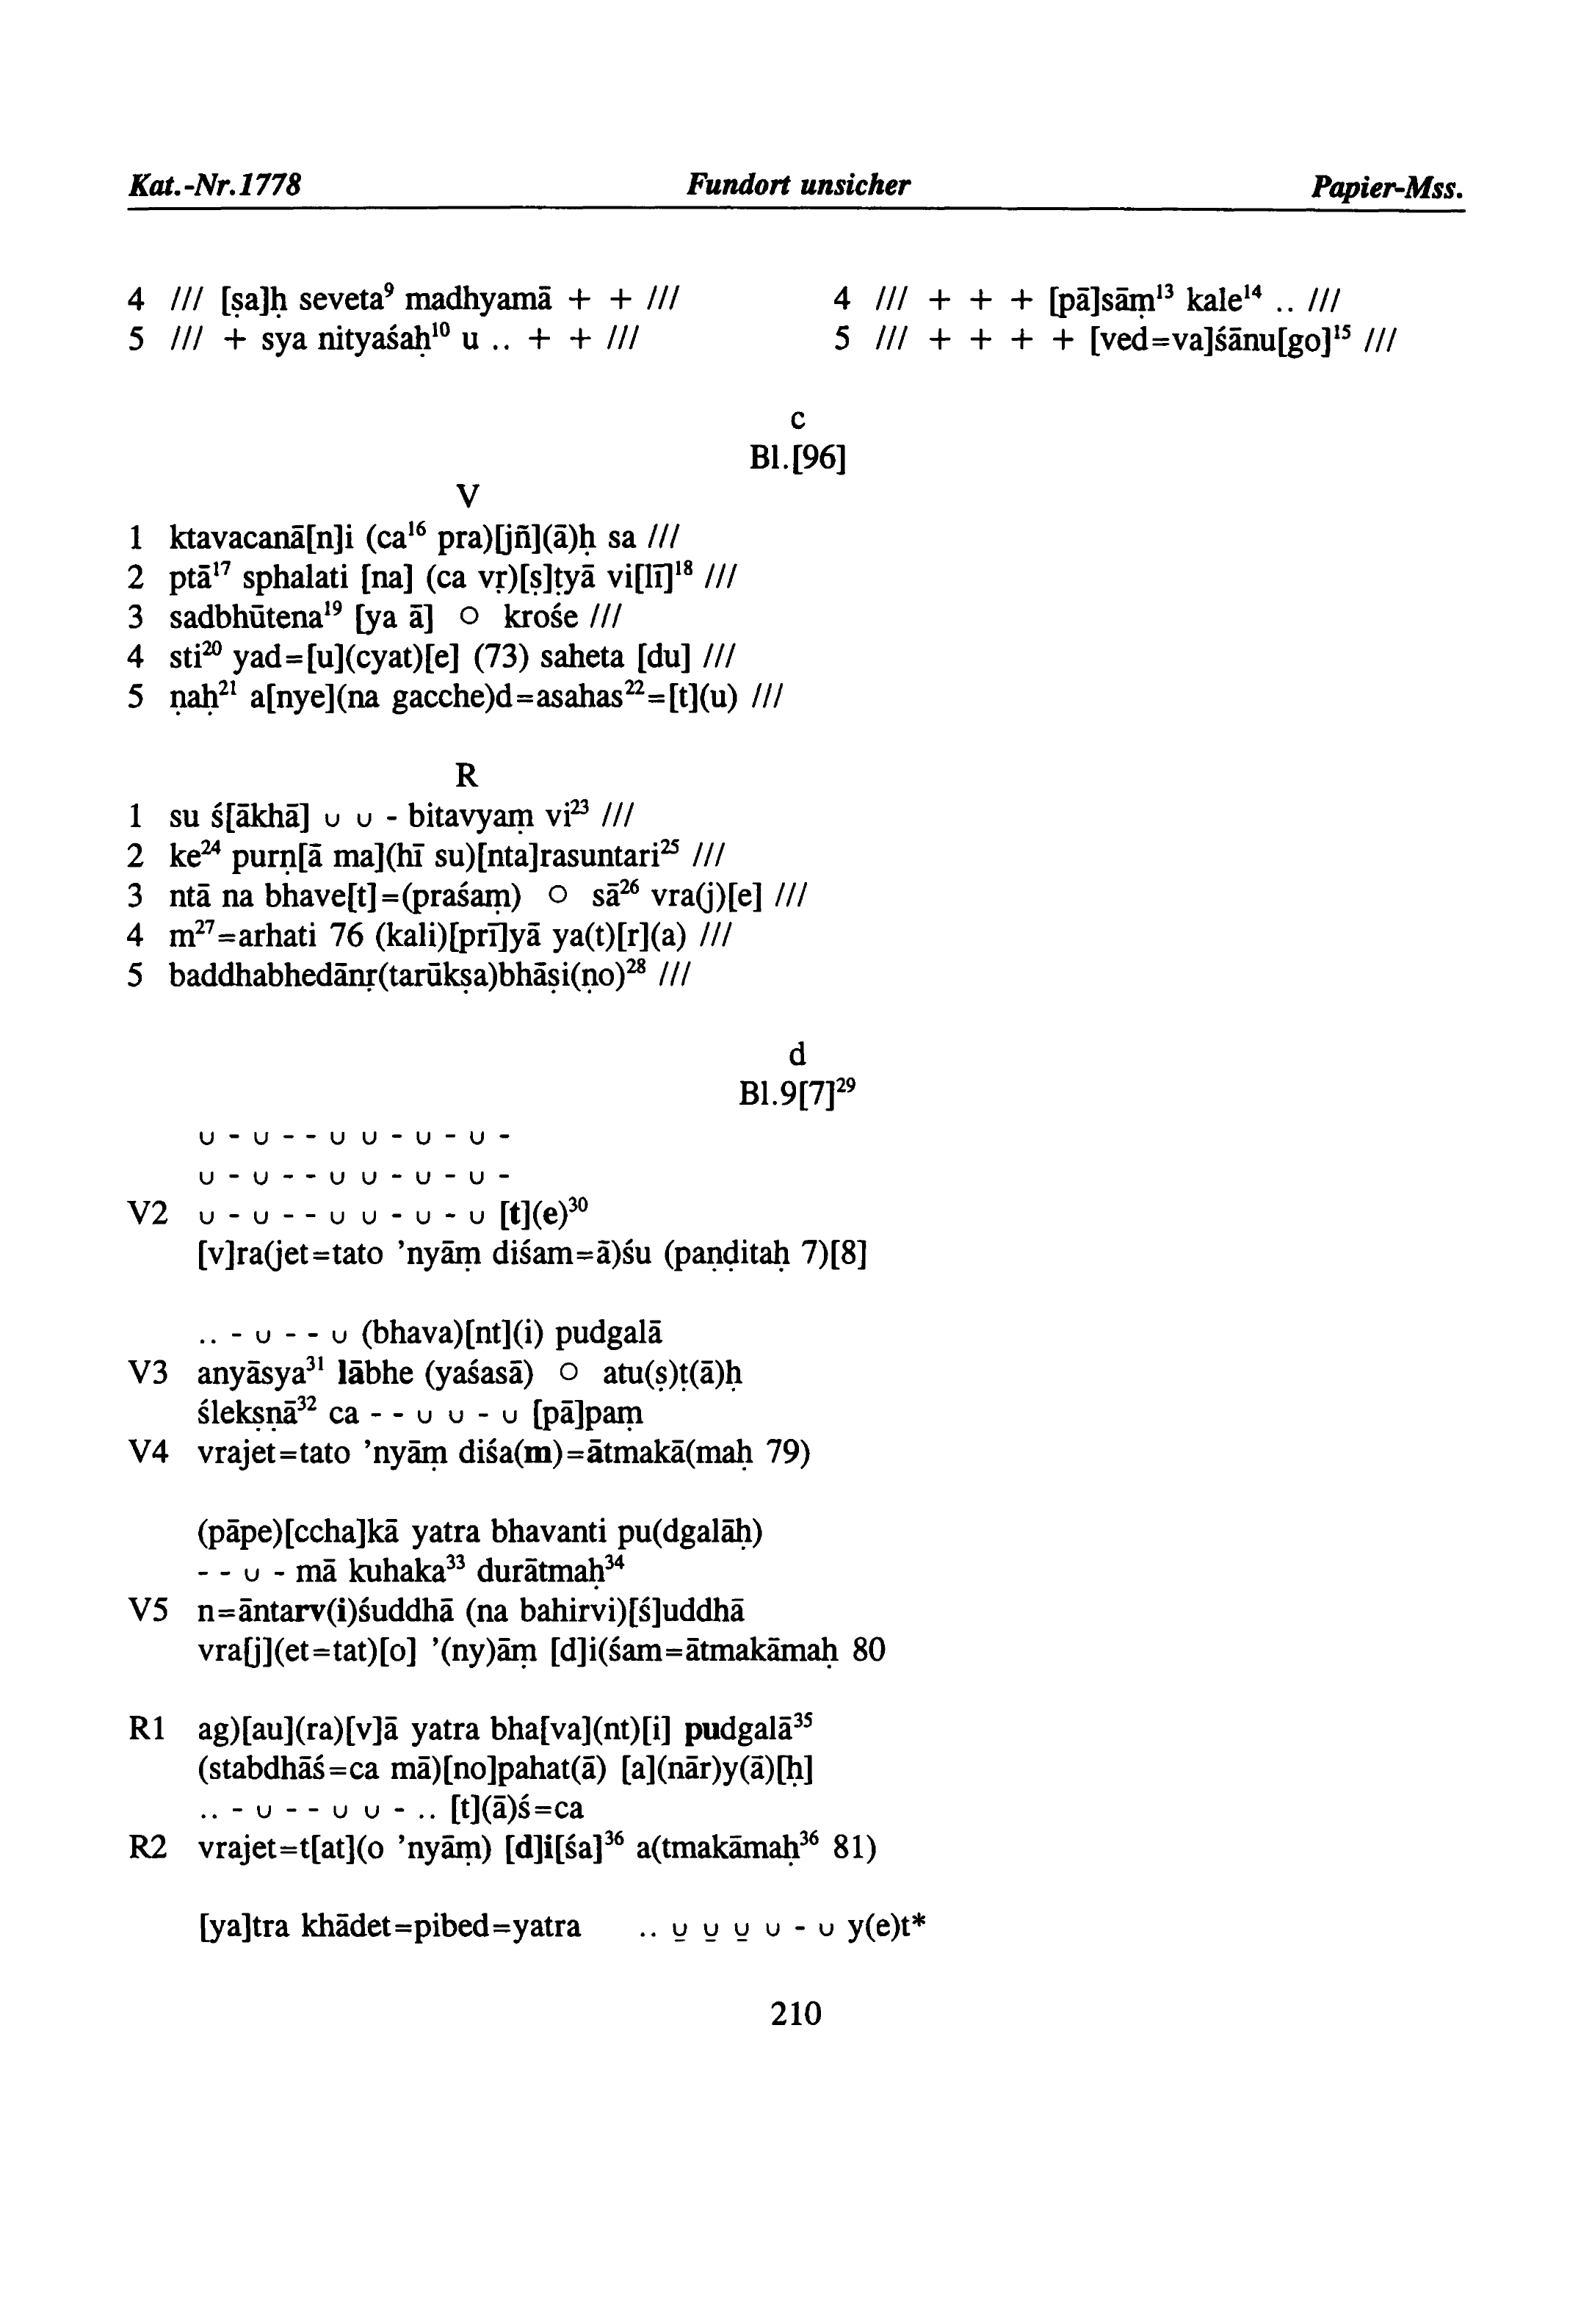 Kat.-Nr.1778 Fundort unsicher Papier-Mss.
4 /// [ṣa]ḥ seveta⁹ madhyamā + + ///
5 /// + sya nityaśaḥ¹⁰ u .. + + ///
4 /// + + + [pā]sāṃ¹³ kale¹⁴ .. ///
5 /// + + + + [ved=va]śānu[go]¹⁵ ///
c
Bl.[96]
V
1 ktavacanā[n]i (ca¹⁶ pra)[jñ](ā)ḥ sa ///
2 ptā¹⁷ sphalati [na] (ca vṛ)[ṣ]ṭyā vi[lī]¹⁸ ///
3 sadbhūtena¹⁹ [ya ā] ○ krośe ///
4 sti²⁰ yad=[u](cyat)[e] (73) saheta [du] ///
5 ṇaḥ²¹ a[nye](na gacche)d=asahas²²=[t](u) ///
R
1 su ś[ākhā] ∪ ∪ - bitavyaṃ vi²³ ///
2 ke²⁴ purṇ[ā ma](hī su)[nta]rasuntari²⁵ ///
3 ntā na bhave[t]=(praśaṃ) ○ sā²⁶ vra(j)[e] ///
4 m²⁷=arhati 76 (kali)[prī]yā ya(t)[r](a) ///
5 baddhabhedānṛ(tarūkṣa)bhāṣi(ṇo)²⁸ ///
d
Bl.9[7]²⁹
∪ - ∪ - - ∪ ∪ - ∪ - ∪ -
∪ - ∪ - - ∪ ∪ - ∪ - ∪ -
V2 ∪ - ∪ - - ∪ ∪ - ∪ - ∪ [t](e)³⁰
[v]ra(jet=tato ’nyāṃ diśam=ā)śu (paṇḍitaḥ 7)[8]
.. - ∪ - - ∪ (bhava)[nt](i) pudgalā
V3 anyāsya³¹ lābhe (yaśasā) ○ atu(ṣ)ṭ(ā)ḥ
ślekṣṇā³² ca - - ∪ ∪ - ∪ [pā]paṃ
V4 vrajet=tato ’nyāṃ diśa(m)=ātmakā(maḥ 79)
(pāpe)[ccha]kā yatra bhavanti pu(dgalāḥ)
- - ∪ - mā kuhaka³³ durātmaḥ³⁴
V5 n=āntarv(i)śuddhā (na bahirvi)[ś]uddhā
vra[j](et=tat)[o] ’(ny)āṃ [d]i(śam=ātmakāmaḥ 80
R1 ag)[au](ra)[v]ā yatra bha[va](nt)[i] pudgalā³⁵
(stabdhāś=ca mā)[no]pahat(ā) [a](nār)y(ā)[ḥ]
.. - ∪ - - ∪ ∪ - .. [t](ā)ś=ca
R2 vrajet=t[at](o ’nyāṃ) [d]i[śa]³⁶ a(tmakāmaḥ³⁶ 81)
[ya]tra khādet=pibed=yatra .. ∪̱ ∪̱ ∪̱ ∪ - ∪ y(e)t*
210